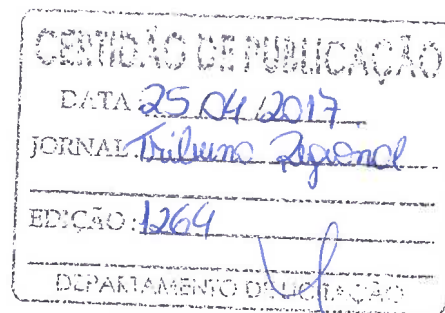 CERTIDÃO DE PUBLICAÇÃO
DATA 25 04 2017
JORNAL: Tribuna Regional
EDIÇÃO: 1264
DEPARTAMENTO DE LICITAÇÃO